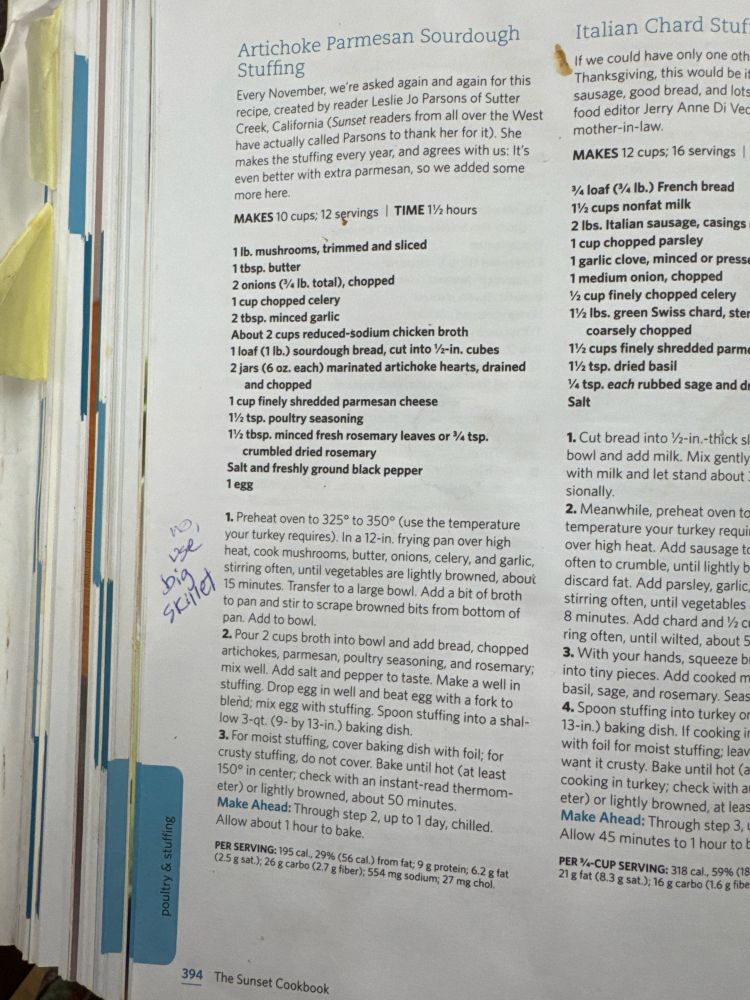 Artichoke Parmesan Sourdough
Stuffing
Every November, we're asked again and again for this
recipe, created by reader Leslie Jo Parsons of Sutter
Creek, California (Sunset readers from all over the West
have actually called Parsons to thank her for it). She
makes the stuffing every year, and agrees with us: It's
even better with extra parmesan, so we added some
more here.
MAKES 10 cups; 12 servings | TIME 1½ hours
1 lb. mushrooms, trimmed and sliced
1 tbsp. butter
2 onions (¾ lb. total), chopped
1 cup chopped celery
2 tbsp. minced garlic
About 2 cups reduced-sodium chicken broth
1 loaf (1 lb.) sourdough bread, cut into ½-in. cubes
2 jars (6 oz. each) marinated artichoke hearts, drained
and chopped
1 cup finely shredded parmesan cheese
1½ tsp. poultry seasoning
1½ tbsp. minced fresh rosemary leaves or ¾ tsp.
crumbled dried rosemary
Salt and freshly ground black pepper
1 egg
no,
use
big
skillet
1. Preheat oven to 325° to 350° (use the temperature
your turkey requires). In a 12-in. frying pan over high
heat, cook mushrooms, butter, onions, celery, and garlic,
stirring often, until vegetables are lightly browned, about
15 minutes. Transfer to a large bowl. Add a bit of broth
to pan and stir to scrape browned bits from bottom of
pan. Add to bowl.
2. Pour 2 cups broth into bowl and add bread, chopped
artichokes, parmesan, poultry seasoning, and rosemary;
mix well. Add salt and pepper to taste. Make a well in
stuffing. Drop egg in well and beat egg with a fork to
blend; mix egg with stuffing. Spoon stuffing into a shal-
low 3-qt. (9- by 13-in.) baking dish.
3. For moist stuffing, cover baking dish with foil; for
crusty stuffing, do not cover. Bake until hot (at least
150° in center; check with an instant-read thermom-
eter) or lightly browned, about 50 minutes.
Make Ahead: Through step 2, up to 1 day, chilled.
Allow about 1 hour to bake.
PER SERVING: 195 cal., 29% (56 cal.) from fat; 9 g protein; 6.2 g fat
(2.5 g sat.); 26 g carbo (2.7 g fiber); 554 mg sodium; 27 mg chol.
poultry & stuffing
394 The Sunset Cookbook
Italian Chard Stuf
If we could have only one oth
Thanksgiving, this would be it
sausage, good bread, and lots
food editor Jerry Anne Di Vec
mother-in-law.
MAKES 12 cups; 16 servings |
¾ loaf (¾ lb.) French bread
1½ cups nonfat milk
2 lbs. Italian sausage, casings
1 cup chopped parsley
1 garlic clove, minced or presse
1 medium onion, chopped
½ cup finely chopped celery
1½ lbs. green Swiss chard, ste
coarsely chopped
1½ cups finely shredded parme
1½ tsp. dried basil
¼ tsp. each rubbed sage and dr
Salt
1. Cut bread into ½-in.-thick sl
bowl and add milk. Mix gently
with milk and let stand about
sionally.
2. Meanwhile, preheat oven to
temperature your turkey requi
over high heat. Add sausage to
often to crumble, until lightly b
discard fat. Add parsley, garlic,
stirring often, until vegetables
8 minutes. Add chard and ½ c
ring often, until wilted, about 5
3. With your hands, squeeze b
into tiny pieces. Add cooked m
basil, sage, and rosemary. Seas
4. Spoon stuffing into turkey or
13-in.) baking dish. If cooking i
with foil for moist stuffing; leav
want it crusty. Bake until hot (a
cooking in turkey; check with a
eter) or lightly browned, at leas
Make Ahead: Through step 3,
Allow 45 minutes to 1 hour to b
PER ¾-CUP SERVING: 318 cal., 59% (18
21 g fat (8.3 g sat.); 16 g carbo (1.6 g fibe